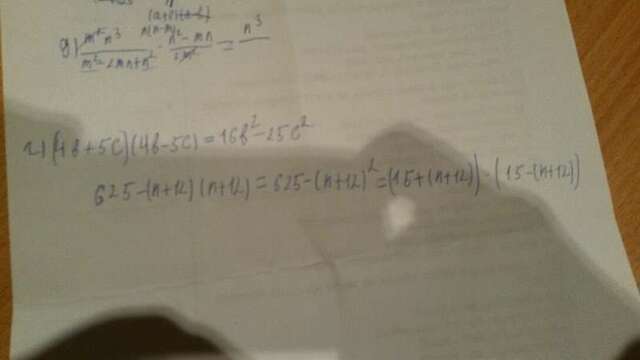 n(n-m)
g) m² n³ / m² - 2mn + n² · n² - mn / 2m² = n³ /
2) (4b + 5c)(4b - 5c) = 16b² - 25c²
625 - (n+12)(n+12) = 625 - (n+12)² = (15 + (n+12)) · (15 - (n+12))